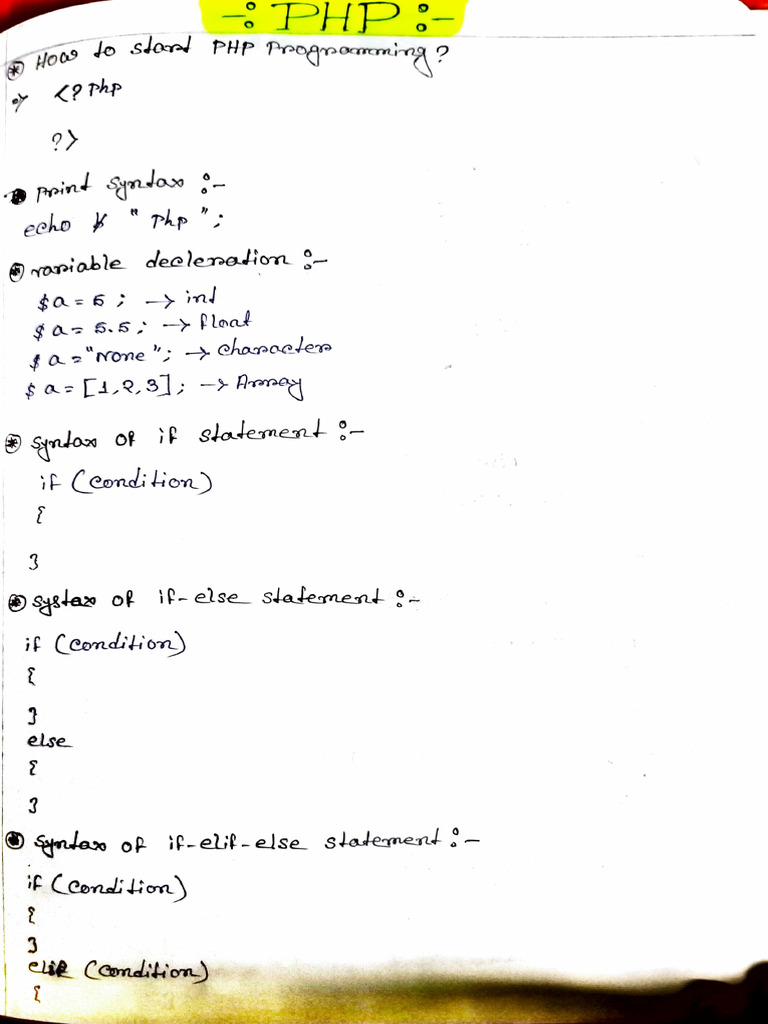 -: PHP :-
How to start PHP Programming?
=> <? Php
?>
Print syntax :-
echo " Php ";
variable decleration :-
$a = 5 ; -> int
$a = 5.5 ; -> float
$a = "None" ; -> Character
$a = [1,2,3] ; -> Array
syntax of if statement :-
if (condition)
{
}
systax of if-else statement :-
if (condition)
{
}
else
{
}
syntax of if-elif-else statement :-
if (condition)
{
}
elif (condition)
{